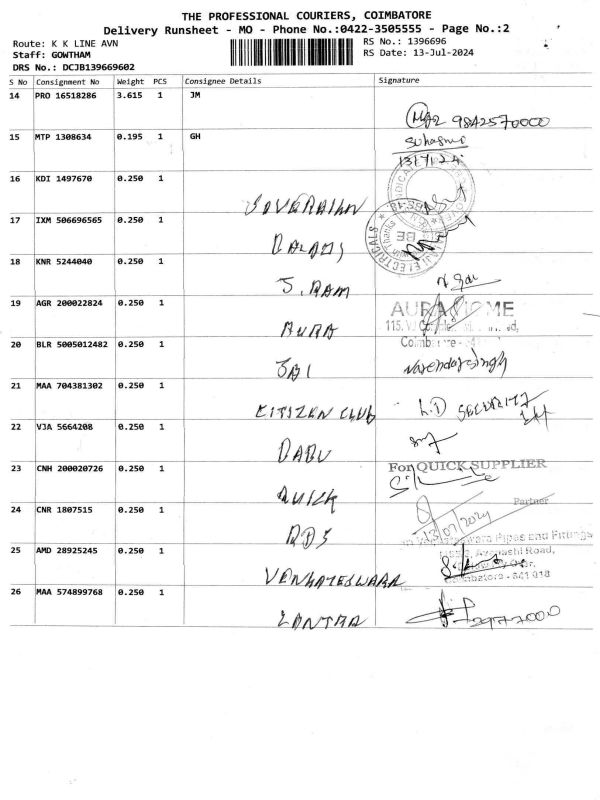 THE PROFESSIONAL COURIERS, COIMBATORE
Delivery Runsheet - MO - Phone No.:0422-3505555 - Page No.:2
Route: K K LINE AVN
Staff: GOWTHAM
DRS No.: DCJB139669602
RS No.: 1396696
RS Date: 13-Jul-2024
S No Consignment No Weight PCS Consignee Details Signature
14 PRO 16518286 3.615 1 JM
9842570000
15 MTP 1308634 0.195 1 GH
13/7/24
16 KDI 1497670 0.250 1
17 IXM 506696565 0.250 1
ELECTRICALS
18 KNR 5244040 0.250 1 J. RAM
19 AGR 200022824 0.250 1 AURA
AURA HOME
20 BLR 5005012482 0.250 1
Narendar singh
21 MAA 704381302 0.250 1 CITIZEN CLUB
SECURITY
22 VJA 5664208 0.250 1 BABU
23 CNH 200020726 0.250 1 QUICK
For QUICK SUPPLIER
Partner
24 CNR 1807515 0.250 1
13/07/2024
Pipes and Fittings
Avanashi Road,
25 AMD 28925245 0.250 1 VENKATESWARA
Coimbatore - 641 018
26 MAA 574899768 0.250 1